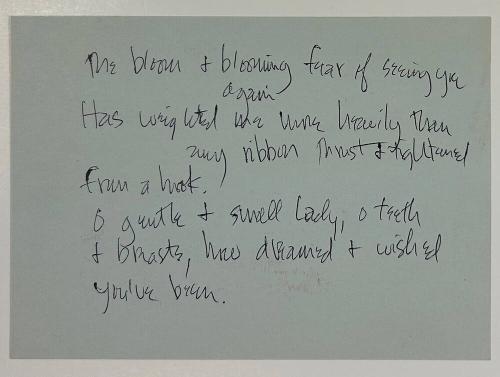 The bloom & blooming fear of seeing you
again
Has weighted me more heavily than
any ribbon thrust & tightened
from a hook.
O gentle & small lady, o teeth
& breasts, how dreamed & wished
you've been.